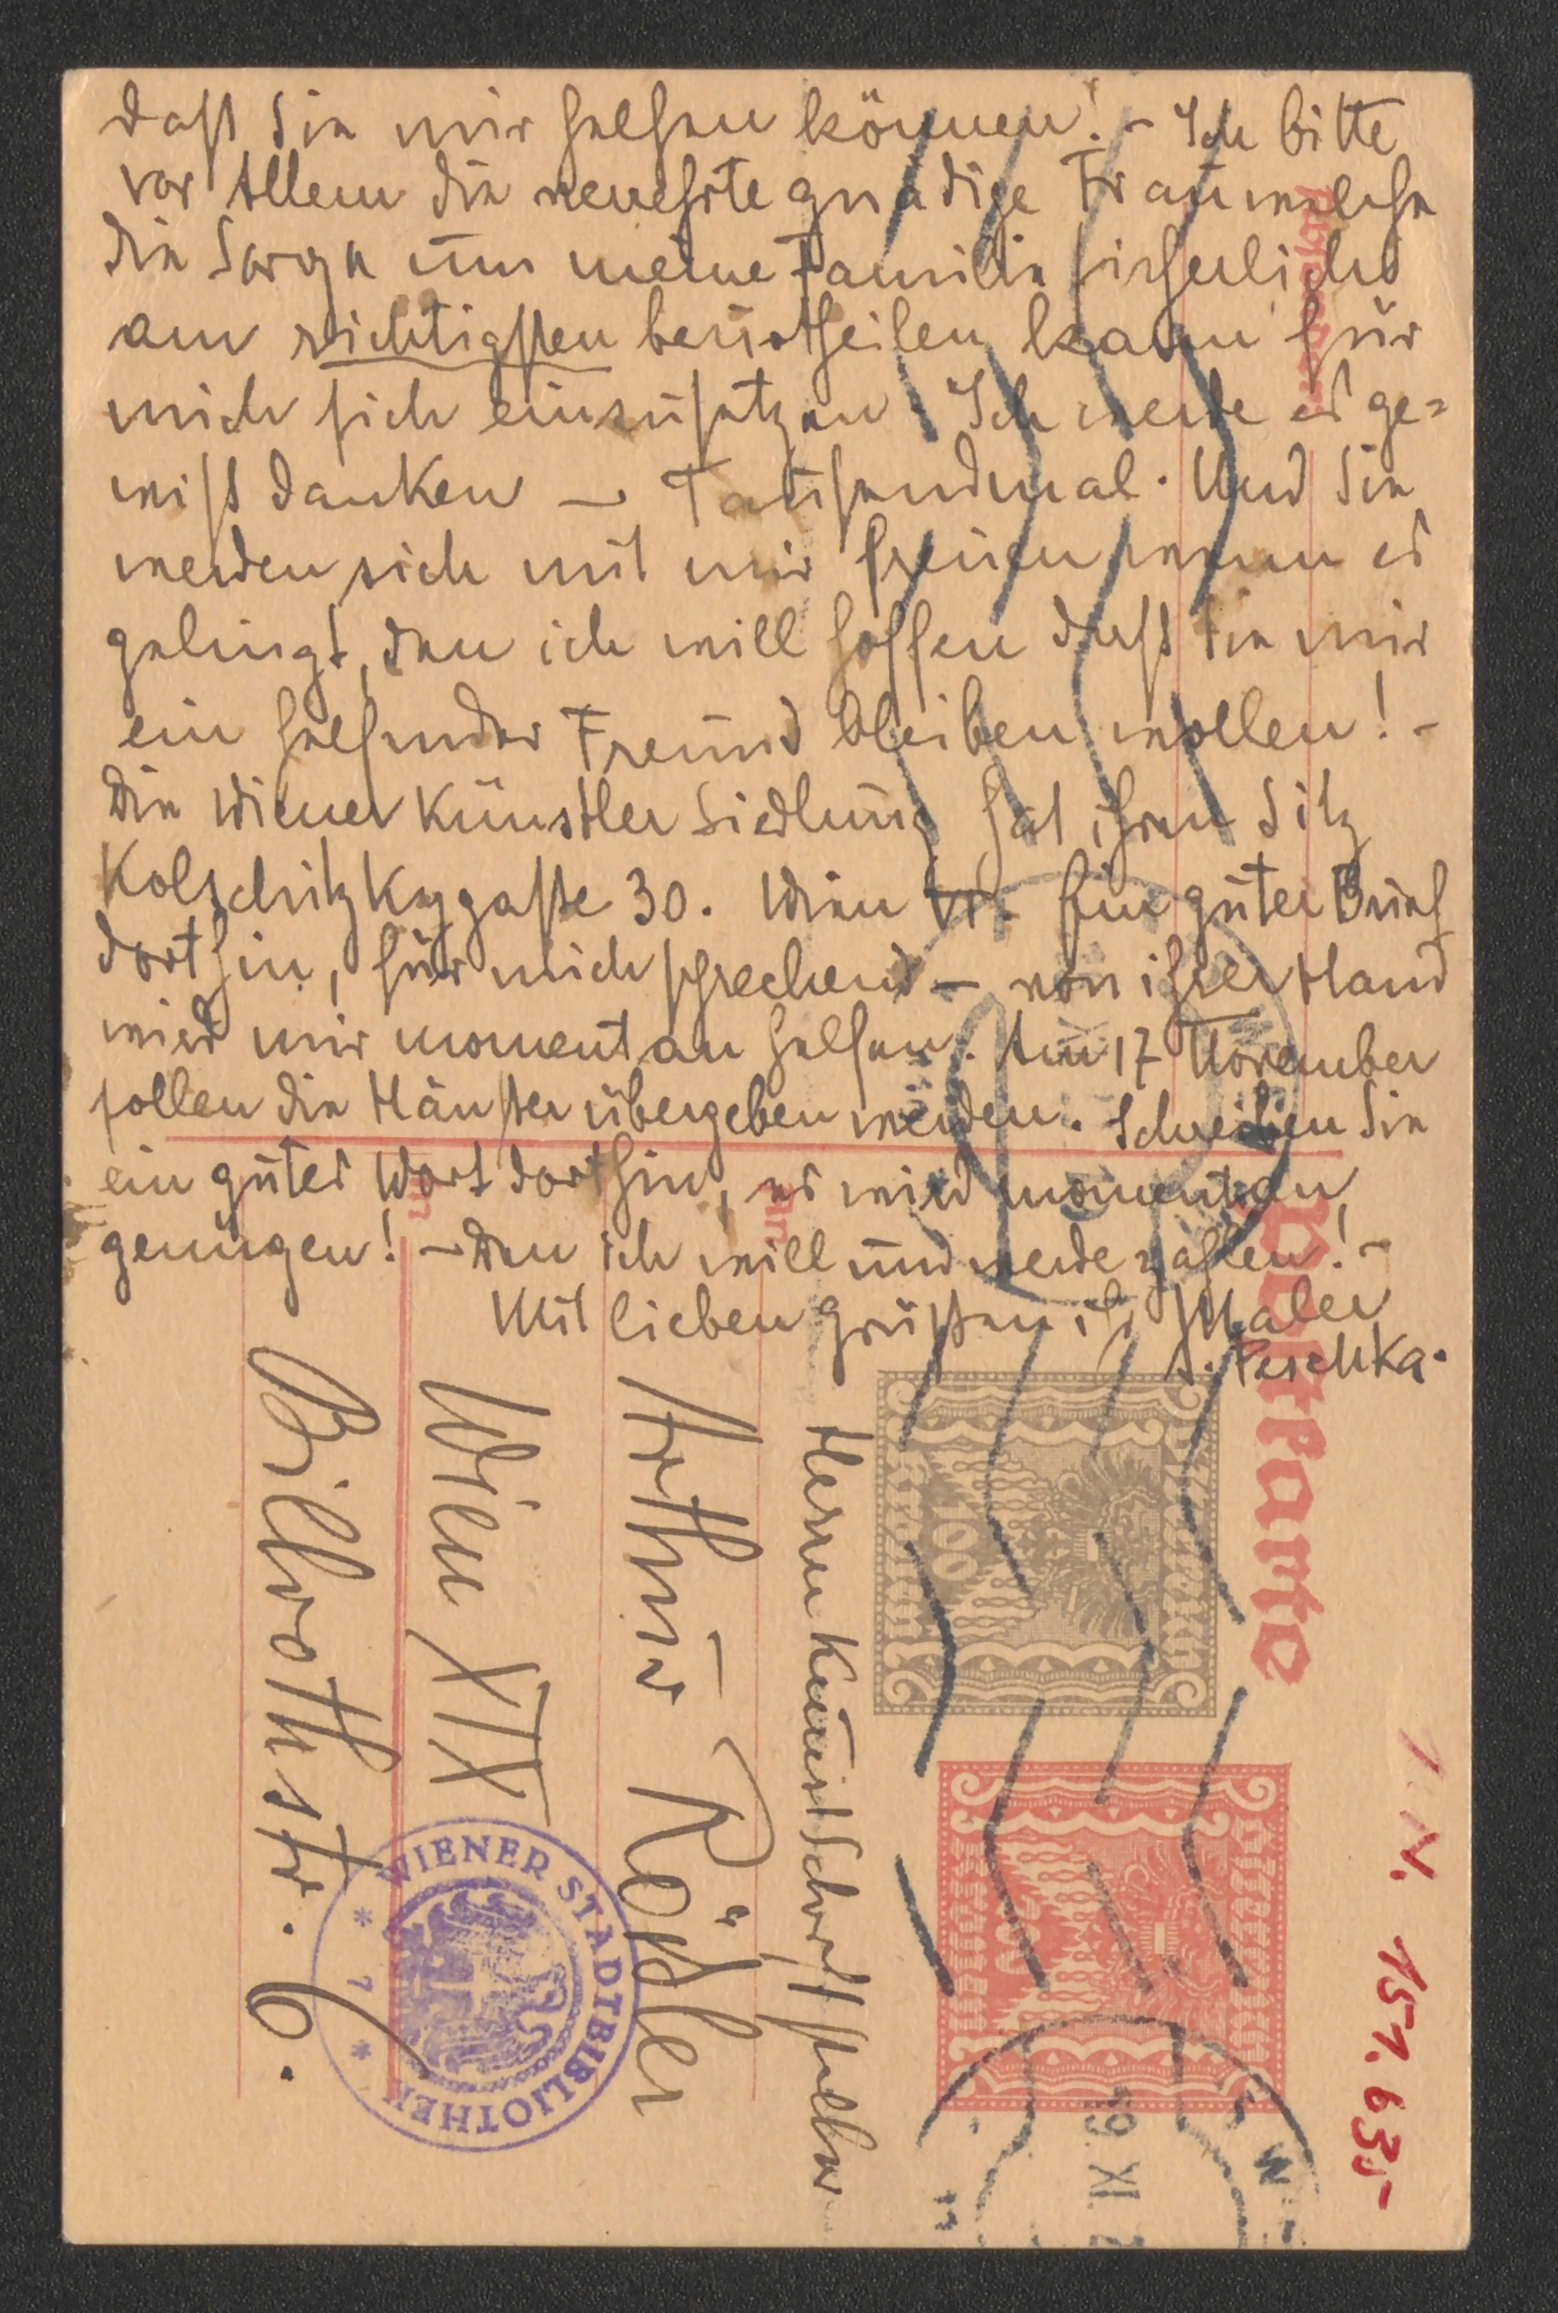 daß Sie mir helfen können! - Ich bitte
vor Allem die verehrte gnädige Frau welche
die Sorge um meine Familie sicherlich
am richtigsten beurtheilen kann für
mich sich einzusetzen. Ich werde es ge=
wiß danken — Tausendmal. Und Sie
werden sich mit mir freuen wenn es
gelingt, den ich will hoffen daß Sie mir
ein helfender Freund bleiben wollen! -
Die Wiener Künstler Siedlung hat ihren Sitz
Kolschitzkygaße 30. Wien VI. Ein guter Brief
dorthin, für mich sprechend — von ihrer Hand
wird mir momentan helfen. Am 17 November
sollen die Häußer übergeben werden. Schreiben Sie
ein gutes Wort dorthin, es wird momentan
genügen! - Den ich will und werde zahlen! -
Mit lieben Grüßen ihr Maler
Peschka.
Postkarte
Absender:
Herrn Kunstschriftsteller
An
Arthur Rößler
in
Wien XIX
Billrothstr. 6.
Österreich
100
Kronen
Österreich
WIENER STADTBIBLIOTHEK
* 7 *
I. N. 151.635
XI